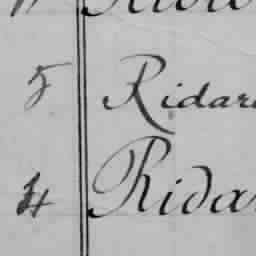 5 Ridar
4 Rida